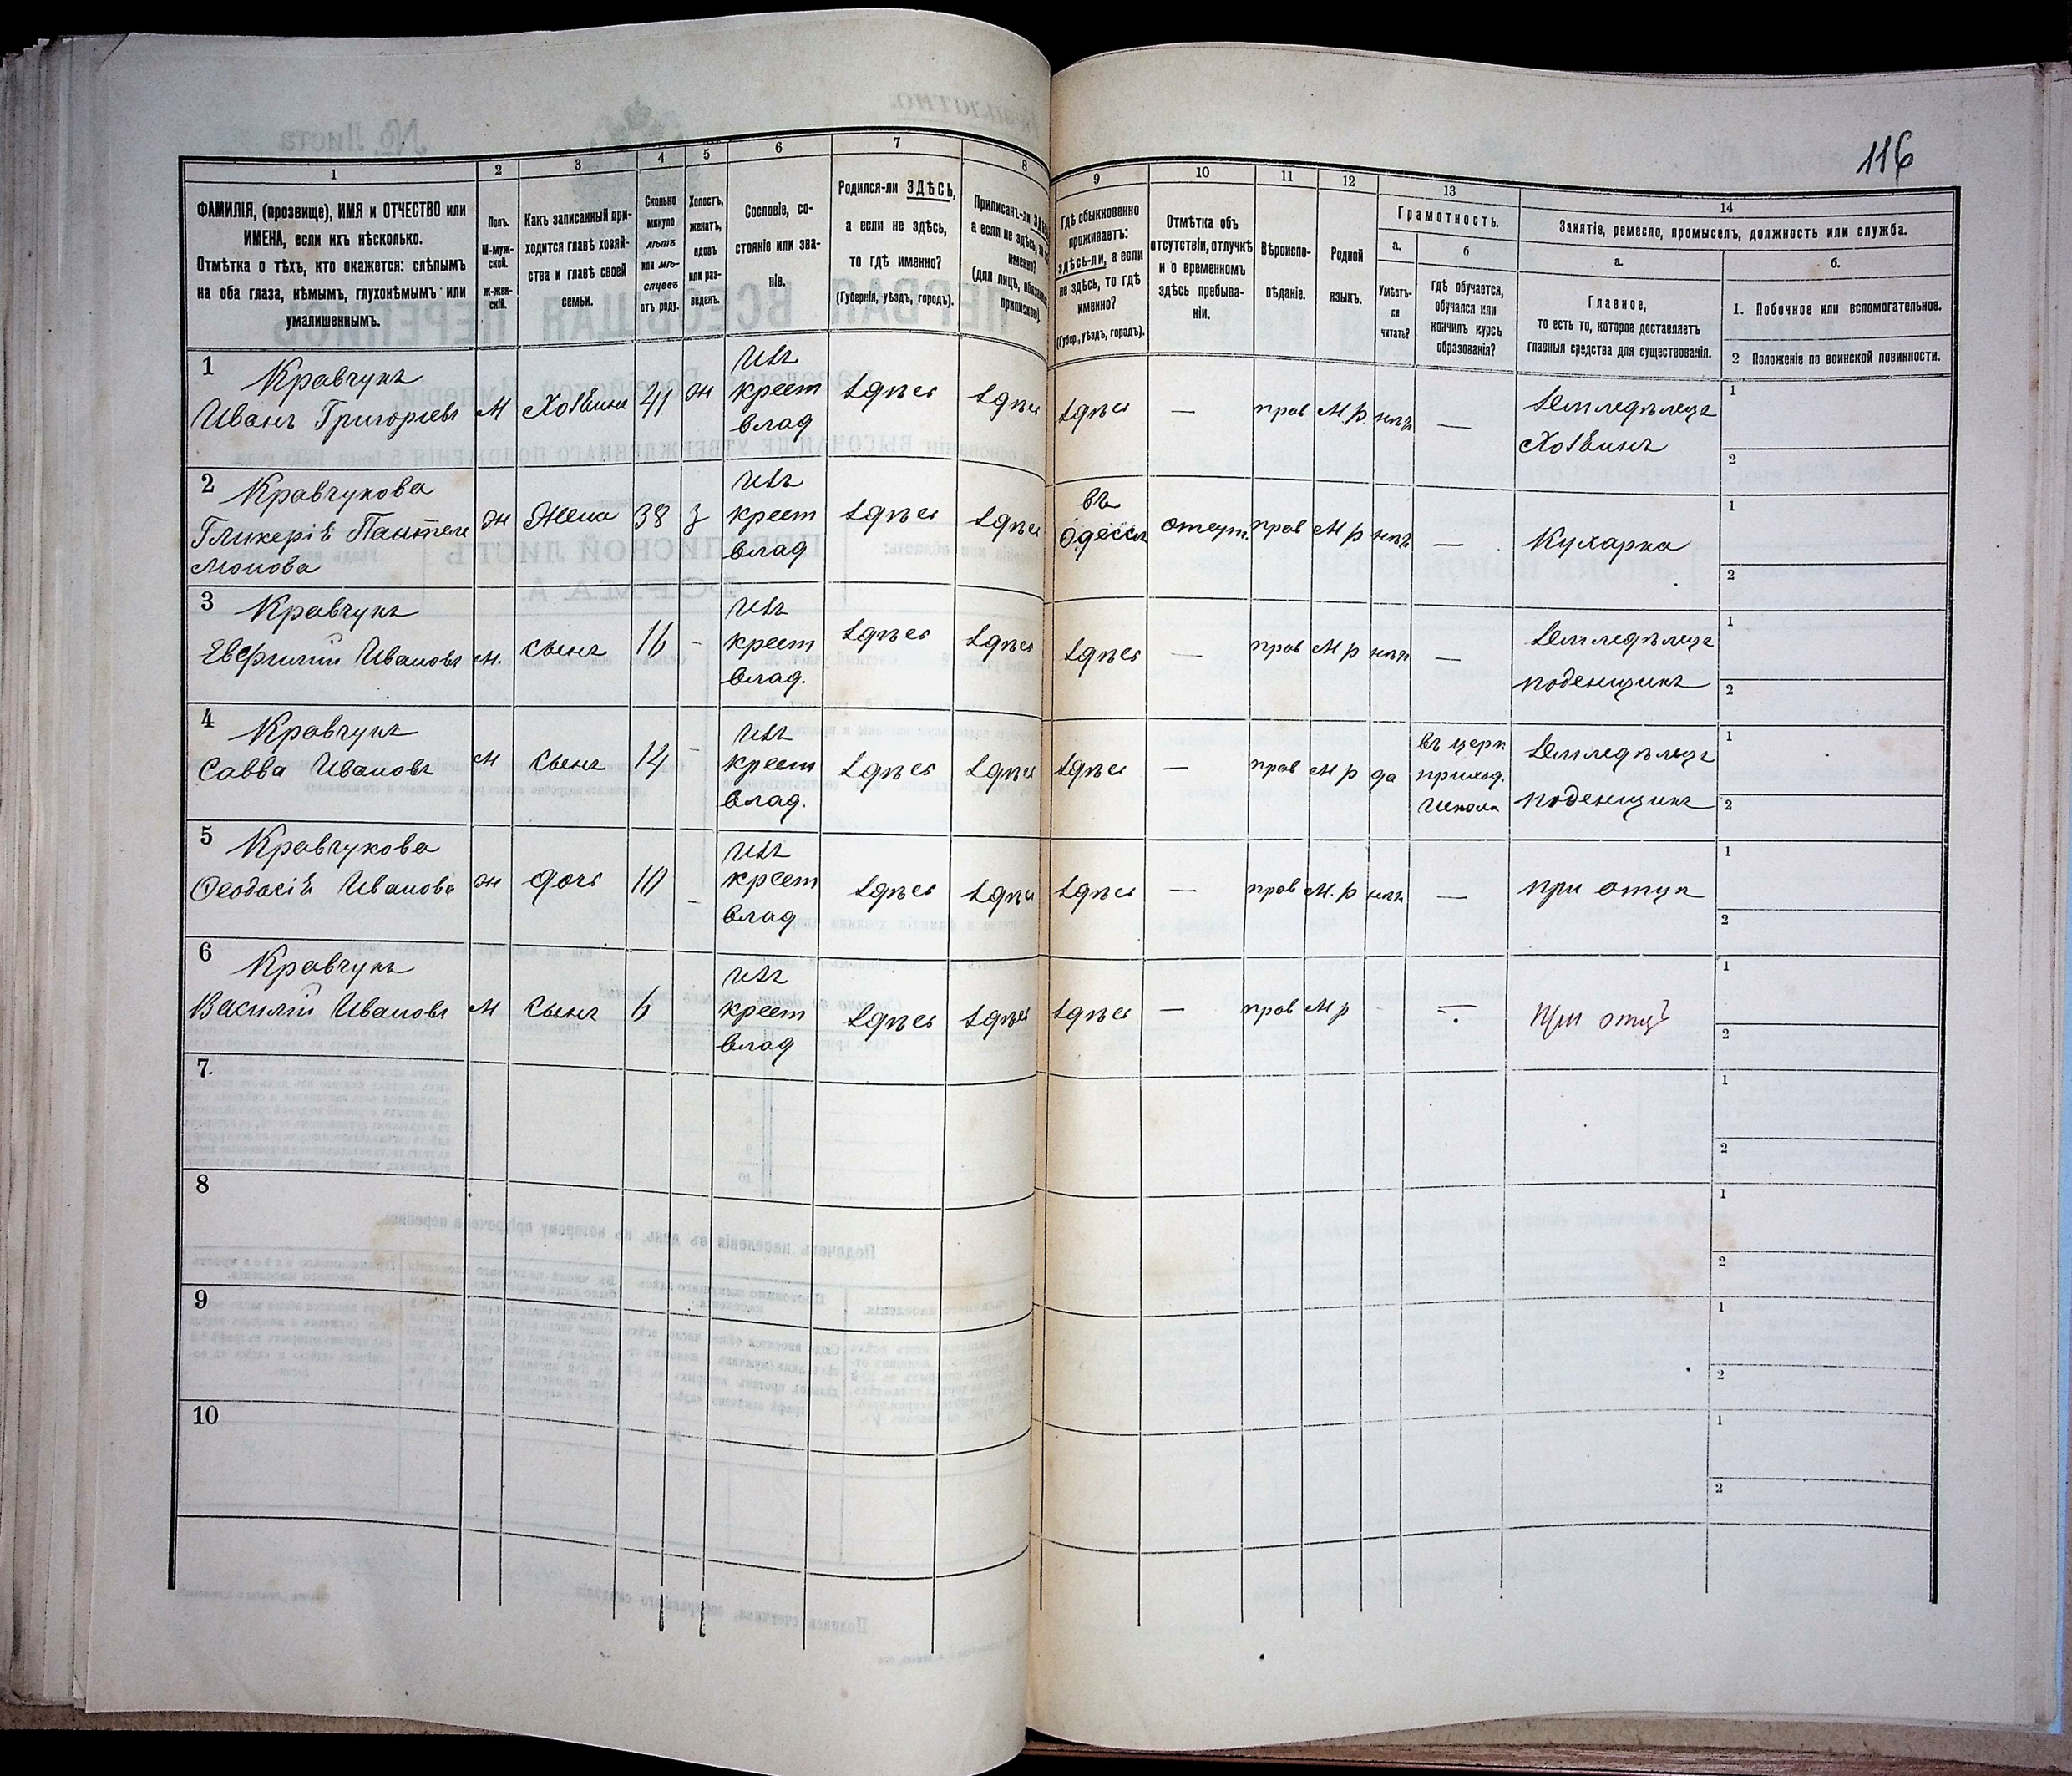 116
1
2
3
4
5
6
7
8
9
10
11
12
13
14
ФАМИЛІЯ, (прозвище), ИМЯ и ОТЧЕСТВО или
ИМЕНА, если ихъ нѣсколько.
Отмѣтка о тѣхъ, кто окажется: слѣпымъ
на оба глаза, нѣмымъ, глухонѣмымъ или
умалишеннымъ.
Полъ.
М-муж-
ской.
ж-жен-
скій.
Какъ записанный при-
ходится главѣ хозяй-
ства и главѣ своей
семьи.
Сколько
минуло
лѣтъ
или мѣ-
сяцевъ
отъ роду.
Холостъ,
женатъ,
вдовъ
или раз-
веденъ.
Сословіе, со-
стояніе или зва-
ніе.
Родился-ли ЗДѢСЬ,
а если не здѣсь,
то гдѣ именно?
(Губернія, уѣздъ, городъ).
Приписанъ-ли
а если не здѣсь, то
именно?
(для лицъ,
припискою).
Гдѣ обыкновенно
проживаетъ:
здѣсь-ли, а если
не здѣсь, то гдѣ
именно?
(Губер., уѣздъ, городъ).
Отмѣтка объ
отсутствіи, отлучкѣ
и о временномъ
здѣсь пребыва-
ніи.
Вѣроиспо-
вѣданіе.
Родной
языкъ.
Грамотность.
а.
б
Умѣетъ-
ли
читать?
гдѣ обучается,
обучался или
кончилъ курсъ
образованія?
Занятія, ремесло, промыселъ, должность или служба.
а.
б.
Главное,
то есть то, которое доставляетъ
главныя средства для существованія.
1. Побочное или вспомогательное.
2 Положеніе по воинской повинности.
1 Кравчукъ
Иванъ Григорьевъ М Хозяинъ 41 ж изъ крест влад здѣсь здѣсь здѣсь — прав М.р. нѣтъ — Земледѣлецъ
Хозяинъ
1
2
2 Кравчукова
Гликерія Пантеле
монова ж Жена 38 з изъ крест влад здѣсь здѣсь въ Одессѣ отсут. прав М р нѣтъ — Кухарка
1
2
3 Кравчукъ
Евфимій Ивановъ м. сынъ 16 - изъ крест влад. здѣсь здѣсь здѣсь — прав М р нѣтъ — Земледѣлецъ
поденщикъ
1
2
4 Кравчукъ
Савва Ивановъ м сынъ 14 - изъ крест влад. здѣсь здѣсь здѣсь — прав М р да въ церк приход. школѣ Земледѣлецъ
поденщикъ
1
2
5 Кравчукова
Ѳеодосія Иванова ж дочь 10 - изъ крест влад здѣсь здѣсь здѣсь — прав М.р нѣтъ — при отцѣ
1
2
6 Кравчукъ
Василій Ивановъ М сынъ 6 изъ крест влад здѣсь здѣсь здѣсь — прав М р - — при отцѣ
1
2
7
1
2
8
1
2
9
1
2
10
1
2